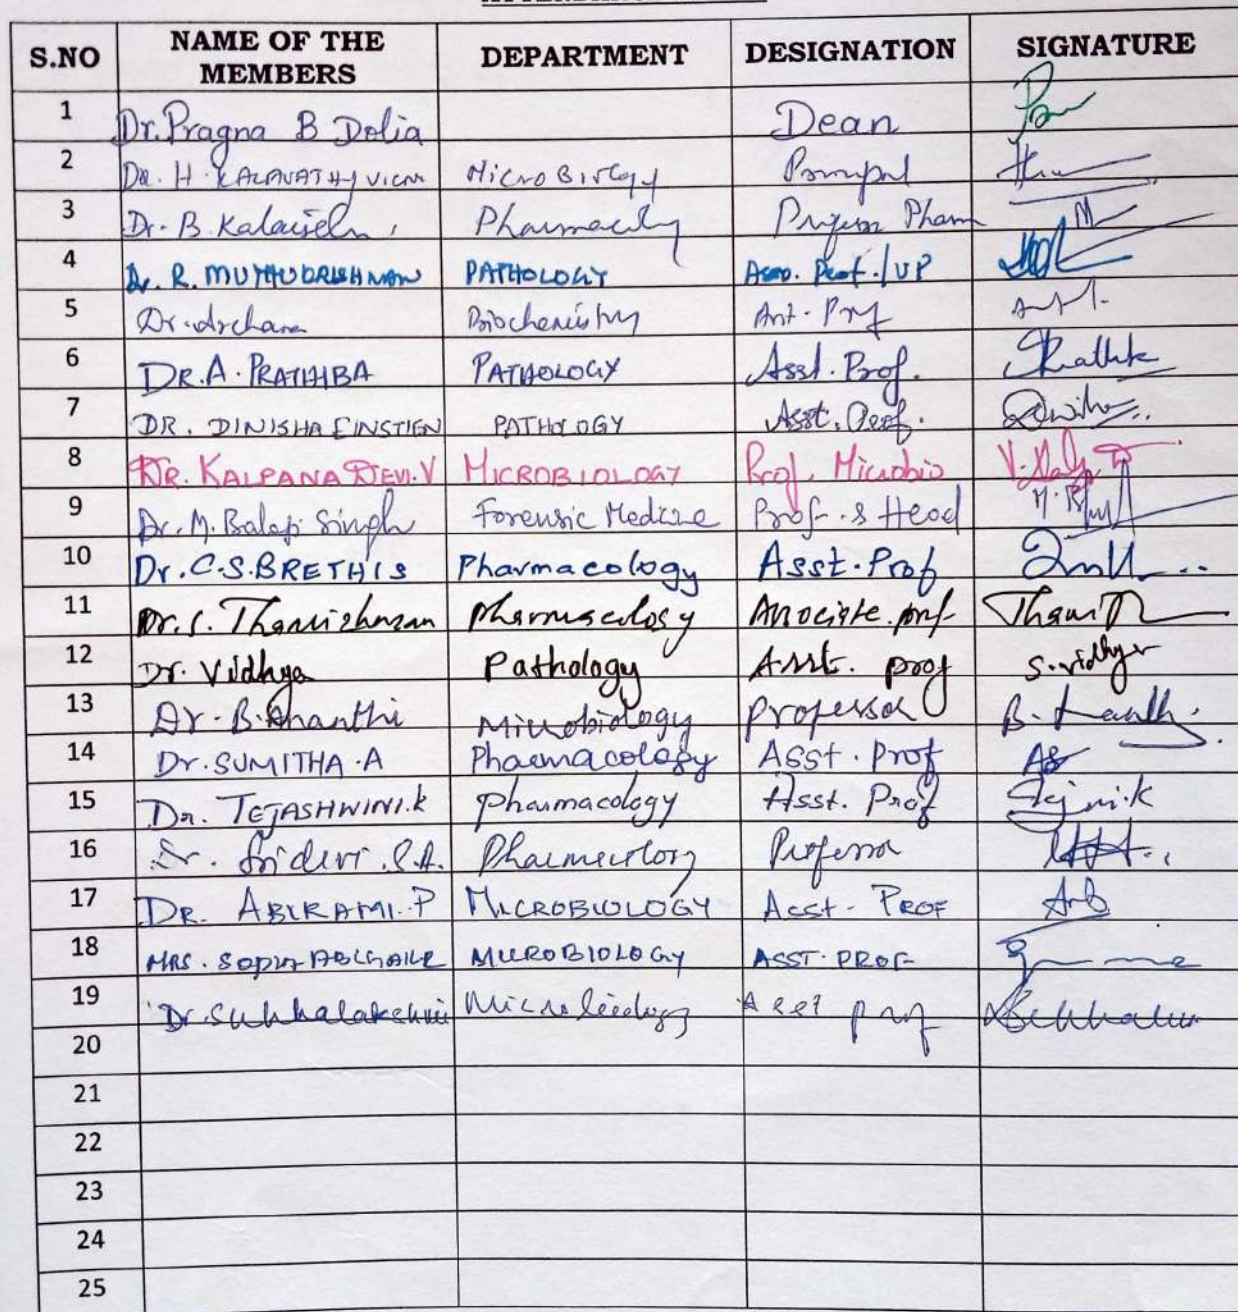 S.NO NAME OF THE MEMBERS DEPARTMENT DESIGNATION SIGNATURE
1 Dr. Pragna B Dolia Dean
2 Dr. H. KALAVATHY MicroBiology
3 Dr. B. Kalaiselvi
4 Dr. R. MUTHUKRISHNAN PATHOLOGY Asso. Prof. / VP
5 Dr. Archana Biochemistry Asst. Prof
6 DR. A. PRATHIBA PATHOLOGY Asst. Prof.
7 DR. DINISHA EINSTIEN PATHOLOGY Asst. Prof.
8 DR. KALPANA DEVI. V MICROBIOLOGY Prof. Microbio
9 Dr. M. Balaji Singh Forensic Medicine Prof. & Head
10 Dr. C.S. BRETHIS Pharmacology Asst. Prof
11 Pharmacology Associate. prof
12 Dr. Vidhya Pathology Asst. prof S. vidhya
13 Dr. B. Ananthi Microbiology Professor
14 Dr. SUMITHA . A Pharmacology Asst. Prof AS
15 Dr. TEJASHWINI. K pharmacology Asst. Prof
16 Dr. Sridevi. S.A. Pharmacology Professor
17 DR. ABIRAMI. P MICROBIOLOGY Asst. PROF
18 MRS. MICROBIOLOGY ASST. PROF
19 Dr. Subhalakshmi Microbiology Asst prof
20
21
22
23
24
25